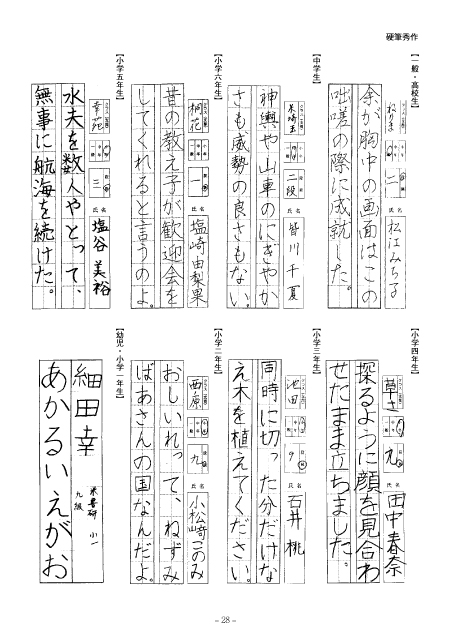 硬筆秀作
【一般・高校生】
ねりま
二
氏名
松江みちる
余が胸中の画面はこの
咄嗟の際に成就した。
【中学生】
米埼玉
二段
氏名
皆川千夏
神輿や山車のにぎやか
さも威勢の良さもない。
【小学六年生】
桐花
一
氏名
塩崎由梨果
昔の教え子が歓迎会を
してくれると言うのよ。
【小学五年生】
三
氏名
塩谷美裕
水夫を数人やとって、
無事に航海を続けた。
【小学四年生】
草さ
九
氏名
田中春奈
探るように顔を見合わ
せたまま立ちました。
【小学三年生】
池田
9
氏名
石井桃
同時に切った分だけな
え木を植えてください。
【小学二年生】
西原
九
氏名
小松崎このみ
おしいれって、ねずみ
ばあさんの国なんだよ。
【幼児・小学一年生】
米書研 小一
九級
細田幸
あかるいえがお
- 28 -